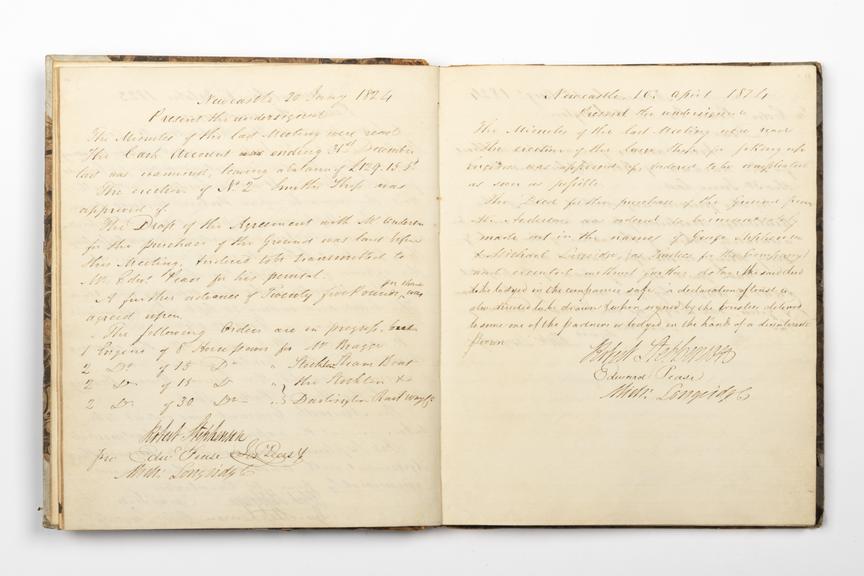 Newcastle 20 Jany 1824
Present the undersigned
The Minutes of the last Meeting were read
The Cash Account ending 31st December
last was examined, leaving a balance of £129.15.8
The erection of No 2 Smiths Shop was
approved of.
The Draft of the Agreement with Mr Anderson
for the purchase of the Ground was laid before
this Meeting, & ordered to be transmitted to
Mr Edwd Pease for his perusal.
A further advance of Twenty five Pounds per share was
agreed upon.
The following Orders are in progress,
1 Engine of 8 Horse power for Mr Bragge
2 Do of 15 Do " Stockton Steam Boat
2 Do of 15 Do " the Stockton &
2 Do of 30 Do " Darlington Rail Way Co
Robert Stephenson
pro Edwd Pease Jos Pease Jr
Michl Longridge
Newcastle 16 April 1824
Present the undersigned
The Minutes of the last Meeting were read
The erection of the large Shop for putting up
Engines was approved of, & ordered to be completed
as soon as possible
The Deed for the purchase of the ground from
Mr Anderson was ordered to be immediately
made out in the names of George Stephenson
& Michael Longridge (as Trustees for the Company)
and executed without further delay, the said deed
to be lodged in the companies safe, a declaration of trust is
also directed to be drawn & when signed by the trustees delivered
to some one of the partners or lodged in the hands of a disinterested
Person
Robert Stephenson
Edward Pease
Michl Longridge